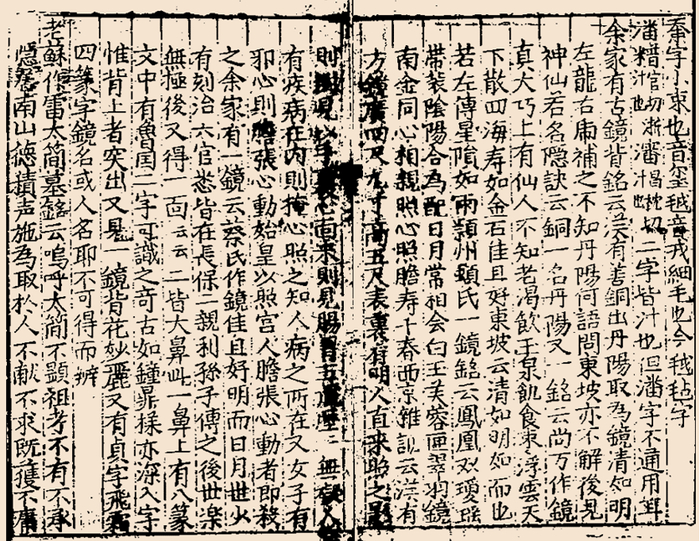 奉字小東也音蛩毧音戎細毛也今毧毡字
潘糂官切淅潘昌枕切二字皆汁也但潘字不通用耳
余家有古鏡背銘云漢有善銅出丹陽取為鏡清如明
左龍右虎補之不知丹陽何語問東坡亦不解後見
神仙若名隐訣云銅一名丹陽又一銘云尚方作鏡
真大巧上有仙人不知老渴飲玉泉飢食棗浮雲天
下敖四海寿如金石佳且好東坡云清如明如而也
若左傳星隕如雨潁州頋氏一鏡銘云鳳凰双瓊瑶
帶裝陰陽合為配日月常相会白玉芙蓉匣翠羽鏡
南金同心相親照心照膽寿千春西京雜記云漢有
方鏡廣四尺九寸高五尺表裏有明人直来照之影
則見心而来則見腸胃五人
有疾病在内則掩心照之知人病之所在又女子有
邪心則膽張心動始皇以照宮人膽張心動者即殺
之余家有一鏡云蔡氏作鏡佳且好明而日月世少
有刻治六官悉皆在長保二親利孫子傳之後世楽
無極後又得一面云云二皆大鼻此一鼻上有八篆
文中有魯国二字可識之奇古如鐘鼎様亦深入字
惟背上者突出又見一鏡背花妙麗又有貞字飛霜
四篆字鏡名或人名耶不可得而辨
老蘇作雷太簡墓銘云嗚呼太簡不顕祖考不有不承
隐居南山徳積声施為取於人不献不求既獲不庸